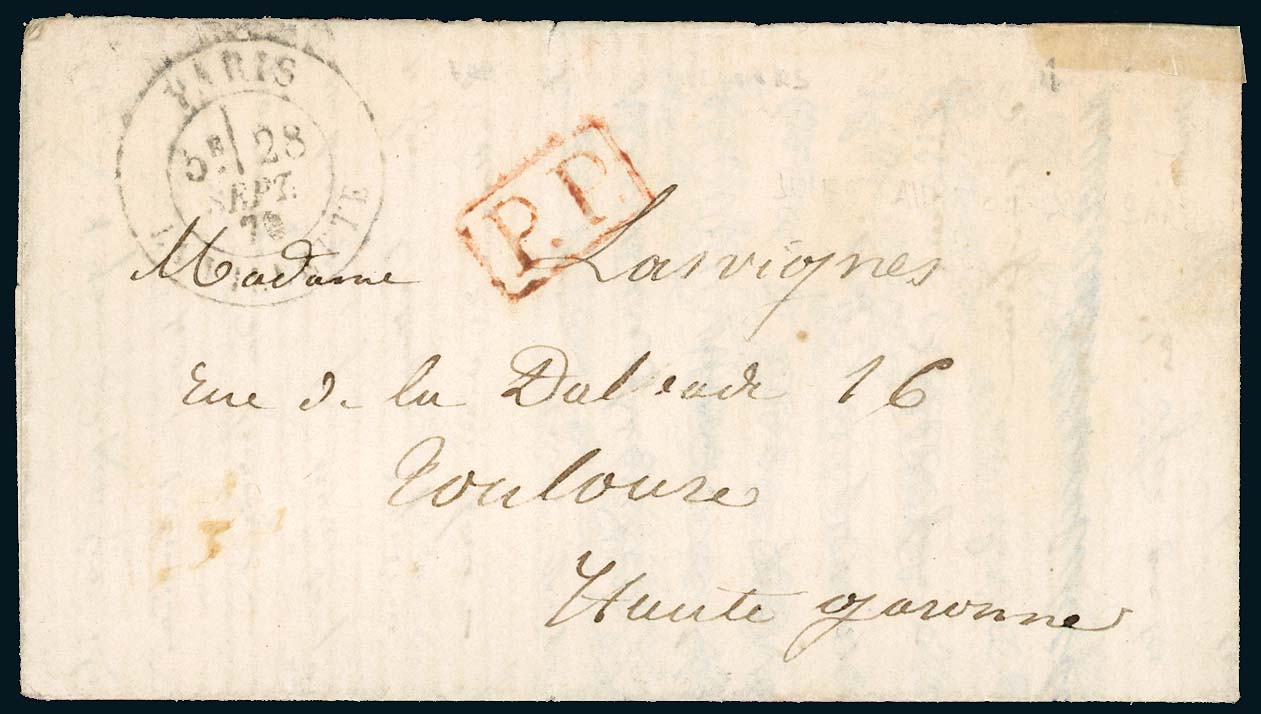 PARIS
5E 28
SEPT.
70
P.P.
Madame Lasvignes
rue de la Dalbade 16
Toulouse
Haute garonne